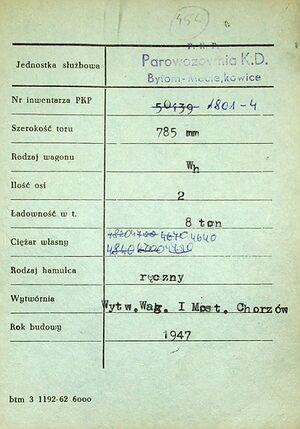 454
P.K.P.
Jednostka służbowa Parowozownia K.D.
Bytom-Maciejkowice
Nr inwentarza PKP 50439 1801-4
Szerokość toru 785 mm
Rodzaj wagonu Wh
Ilość osi 2
Ładowność w t. 8 ton
Ciężar własny 4820 4700 4670 4640
4840
Rodzaj hamulca ręczny
Wytwórnia Wytw.Wag. I Most. Chorzów
Rok budowy 1947
btm 3 1192-62 6000